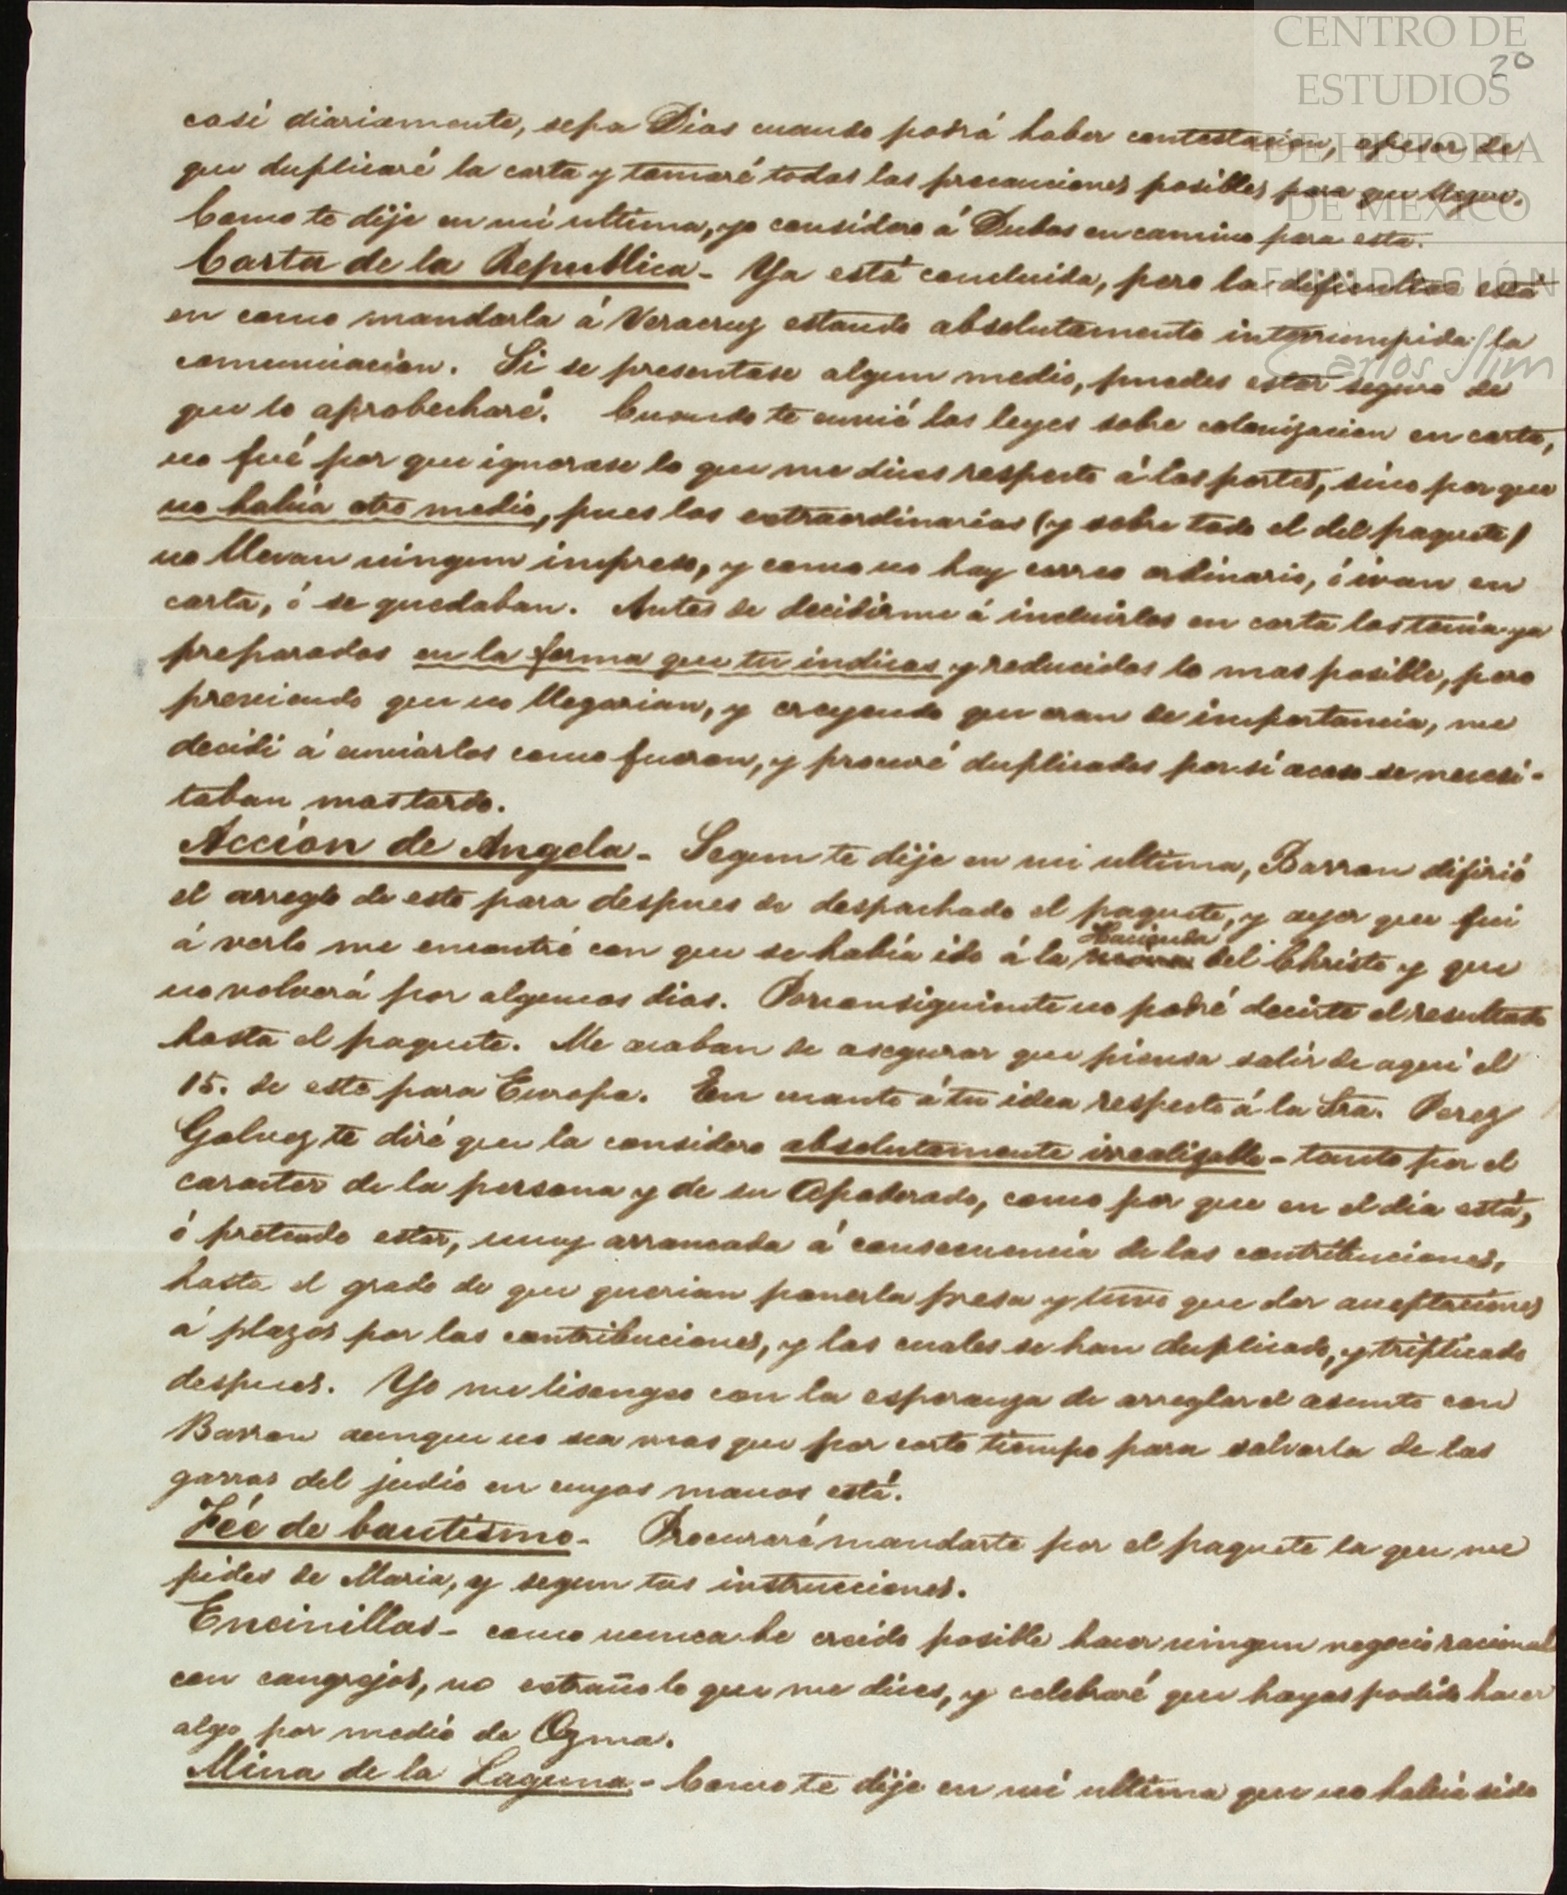 CENTRO DE
20
ESTUDIOS
DE HISTORIA
DE MEXICO
FUNDACIÓN
Carlos Slim
casi diariamente, sepa Dios cuando podrá haber contestacion, apesar de
que duplicaré la carta y tomaré todas las precauciones posibles para que llegue.
Como te dije en mi ultima, yo considero á Dubos en camino para esta.
Carta de la Republica - Ya está concluida, pero la dificultad está
en como mandarla á Veracruz estando absolutamente interrumpida la
comunicacion. Si se presentase algun medio, puedes estar seguro de
que lo aprobecharé. Cuando te envié las leyes sobre colonizacion en carta,
no fué por que ignorase lo que me dices respecto á los portes, sino por que
no habia otro medio, pues los extraordinarios (y sobre todo el del paquete)
no llevan ningun impreso, y como no hay correo ordinario, ó ivan en
carta, ó se quedaban. Antes de decidirme á incluirlos en carta los tenia ya
preparados en la forma que tu indicas y reducidos lo mas posible, pero
previendo que no llegarian, y creyendo que eran de importancia, me
decidi á enviarlos como fueron, y procuré duplicados por si acaso se necesi-
taban mas tarde.
Accion de Angela - Segun te dije en mi ultima, Barron difirió
el arreglo de esto para despues de despachado el paquete, y ayer que fui
á verlo me encontré con que se habia ido á la Hacienda del Christo y que
no volverá por algunos dias. Por consiguiente no podré decirte el resultado
hasta el paquete. Me acaban de asegurar que piensa salir de aqui el
15. de este para Europa. En cuanto á tu idea respecto á la Sra. Perez
Galvez te diré que la considero absolutamente irrealizable - tanto por el
caracter de la persona y de su Apoderado, como por que en el dia está,
ó pretende estar, muy arrancada á consecuencia de las contribuciones,
hasta el grado de que querian ponerla presa y tuvo que dar aceptaciones
á plazos por las contribuciones, y las cuales se han duplicado, y triplicado
despues. Yo me lisongeo con la esperanza de arreglar el asunto con
Barron aunque no sea mas que por corto tiempo para salvarla de las
garras del judio en cuyas manos está.
Fée de bautismo - Procuraré mandarte por el paquete la que me
pides de Maria, y segun tus instrucciones.
Encinillas - como nunca he creido posible hacer ningun negocio racional
con cangrejos, no estraño lo que me dices, y celebraré que hayas podido hacer
algo por medio de Ozma.
Mina de la Laguna - Como te dije en mi ultima que no habia sido